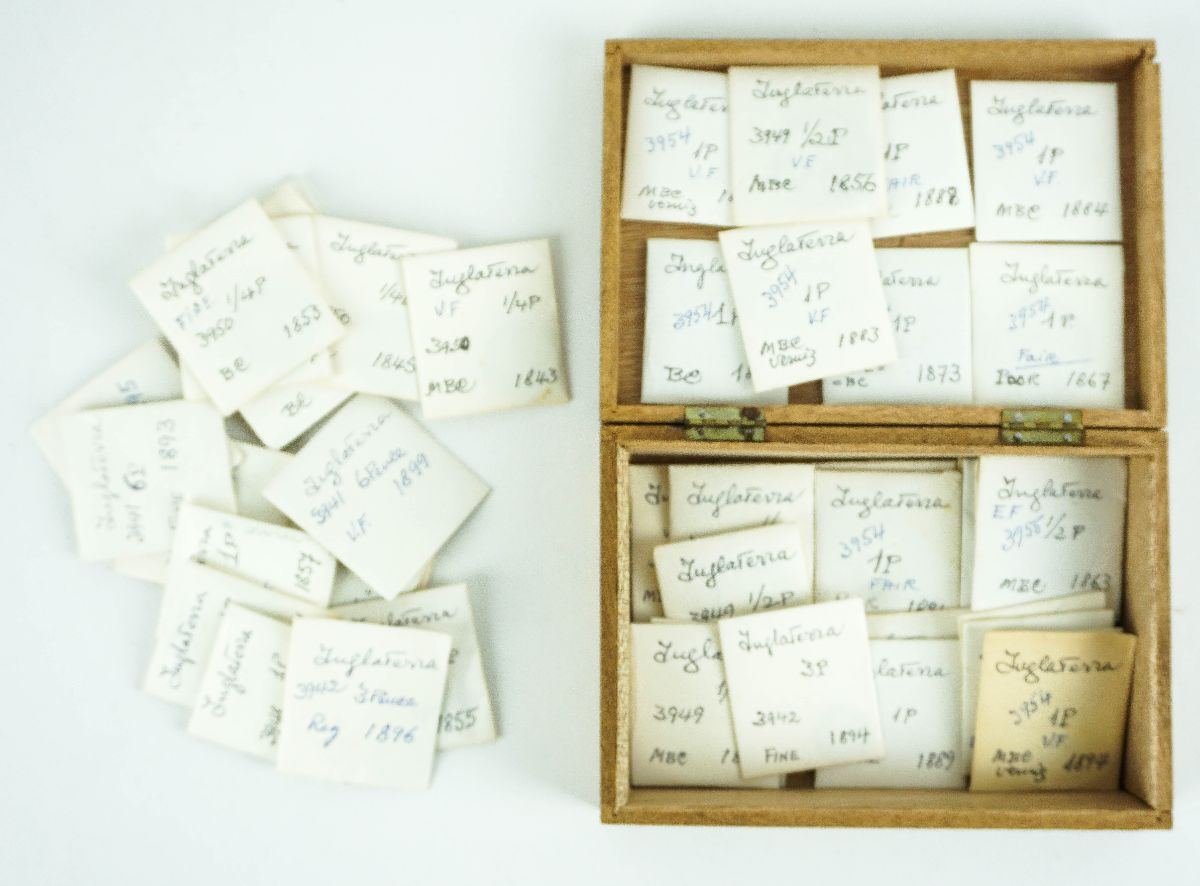 Inglaterra
1/4P
FINE
3950
1853
BC
Inglaterra
1845
Inglaterra
V.F. 1/4P
3950
MBC 1843
BC
Inglaterra
3941 63
1893
Inglaterra
3941 6 Pence
1899
V.F.
1P
1857
Inglaterra
Inglaterra
1P
1855
Inglaterra
3942 3 Pence
Reg 1896
3954
1P
V.F
MBC
verniz
Inglaterra
3949 1/2P
V.F
MBC 1856
1P
FAIR
1888
Inglaterra
3954
1P
V.F.
MBC 1884
3954 1P
BC
Inglaterra
3954
1P
V.F
MBC
verniz 1883
1P
1873
Inglaterra
3954 1P
Fair
POOR 1867
Inglaterra
Inglaterra
1/2P
Inglaterra
3954
1P
FAIR
Inglaterra
EF
3956 1/2P
MBC 1863
3949
MBC
Inglaterra
3P
3942
1894
FINE
1P
1889
Inglaterra
3954
1P
V.F
MBC
verniz 1894